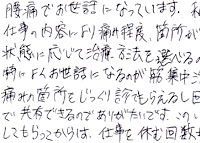 腰痛でお世話になっています。私
仕事の内容により痛み程度、箇所が
状態に応じて治療方法を選べるの
特によくお世話になるのが筋集中
痛みの箇所をじっくり診てもらえるし
で共有できるのでありがたいです。この
してもらってからは、仕事を休む回数も